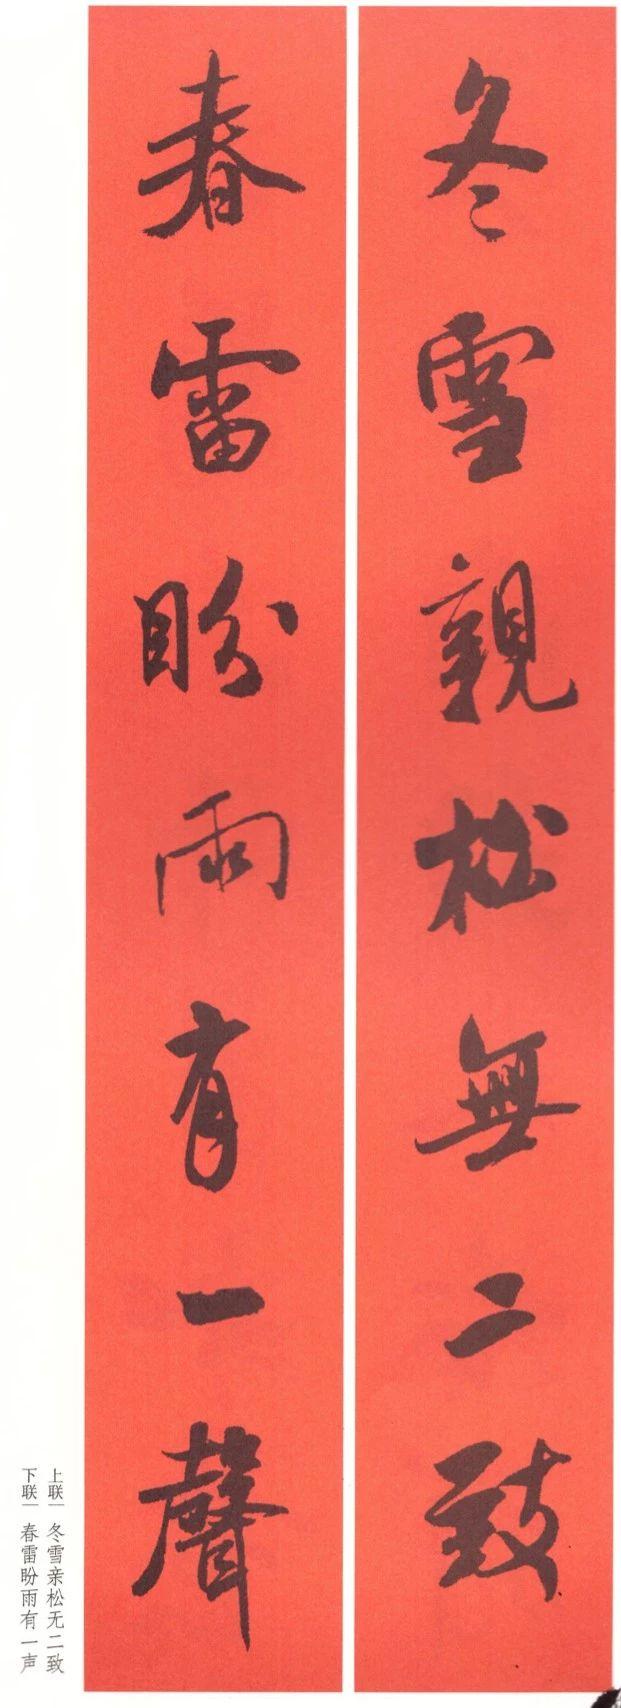 冬雪親松無二致
春雷盼雨有一聲
上联｜冬雪亲松无二致
下联｜春雷盼雨有一声